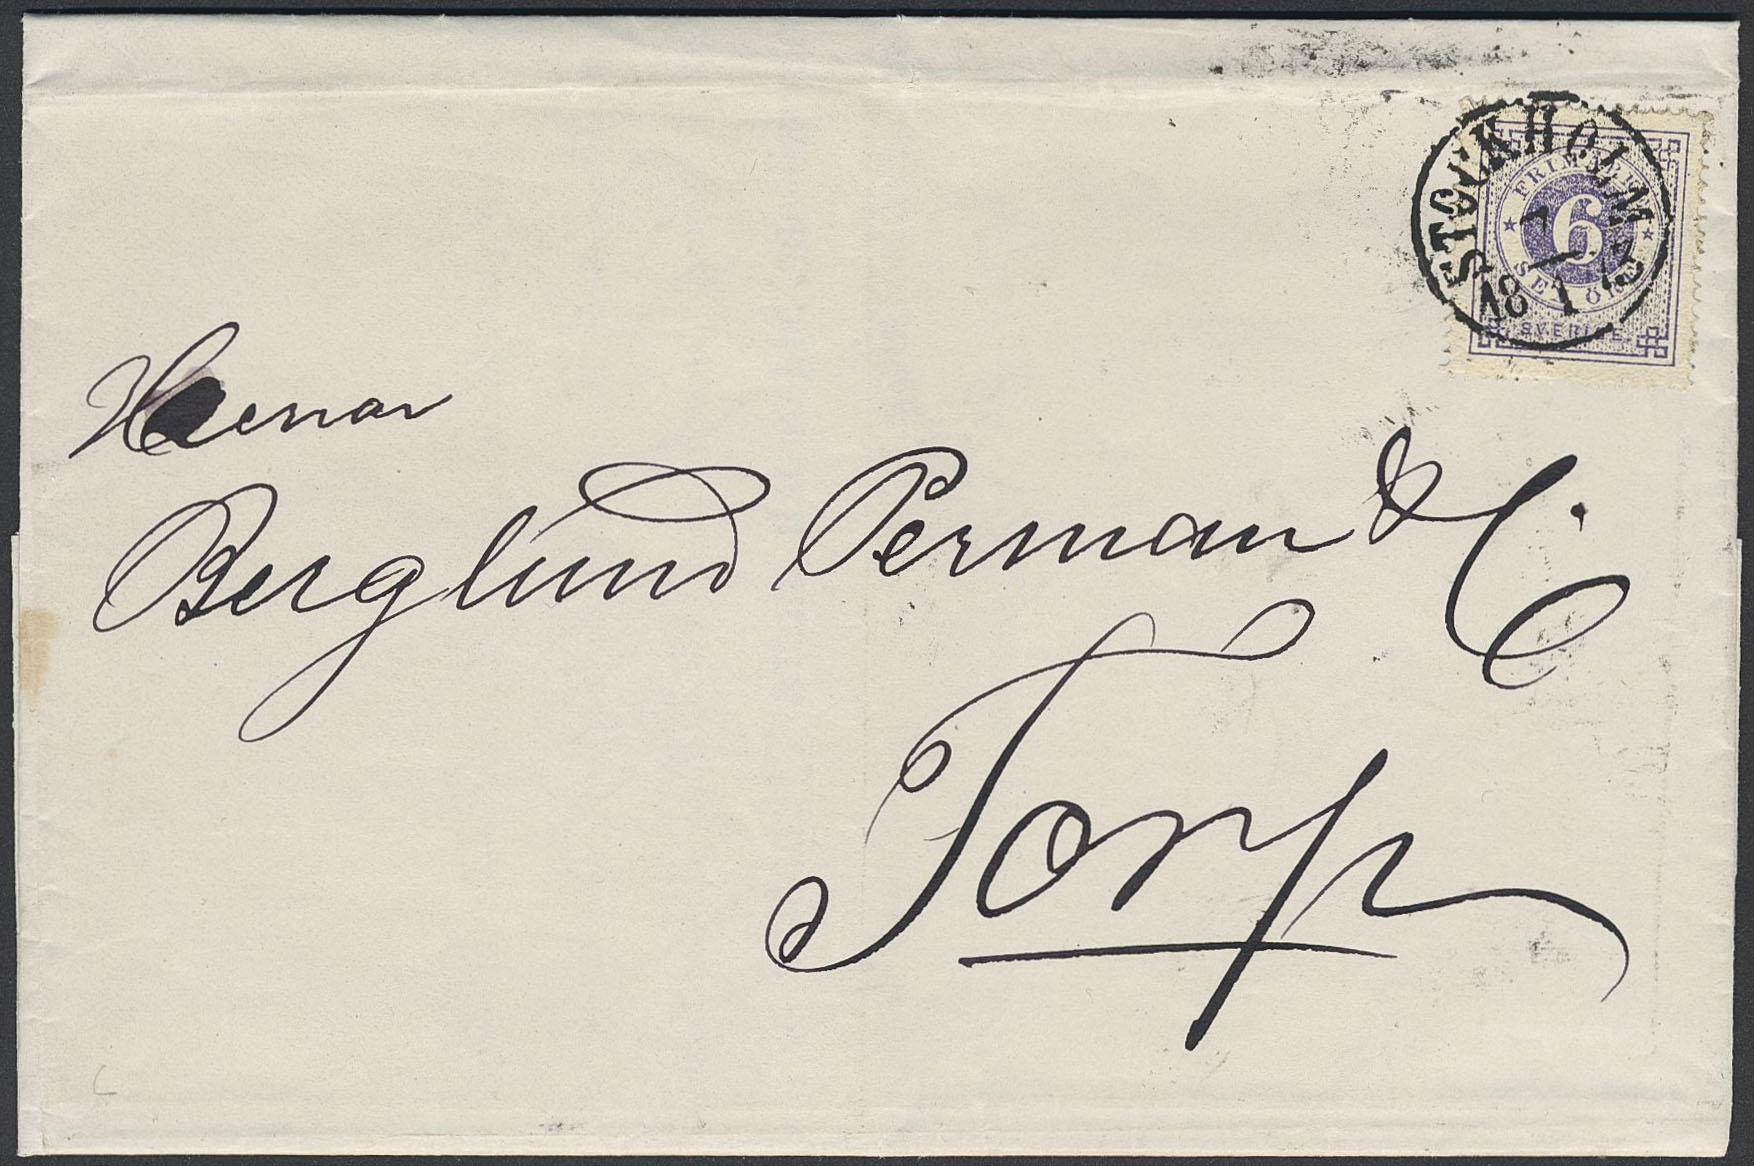 STOCKHOLM
7
18 1 73
FRIMÄRKE
6
SEX ÖRE
SVERIGE
Herrar
Berglund Perman & C.
Torp